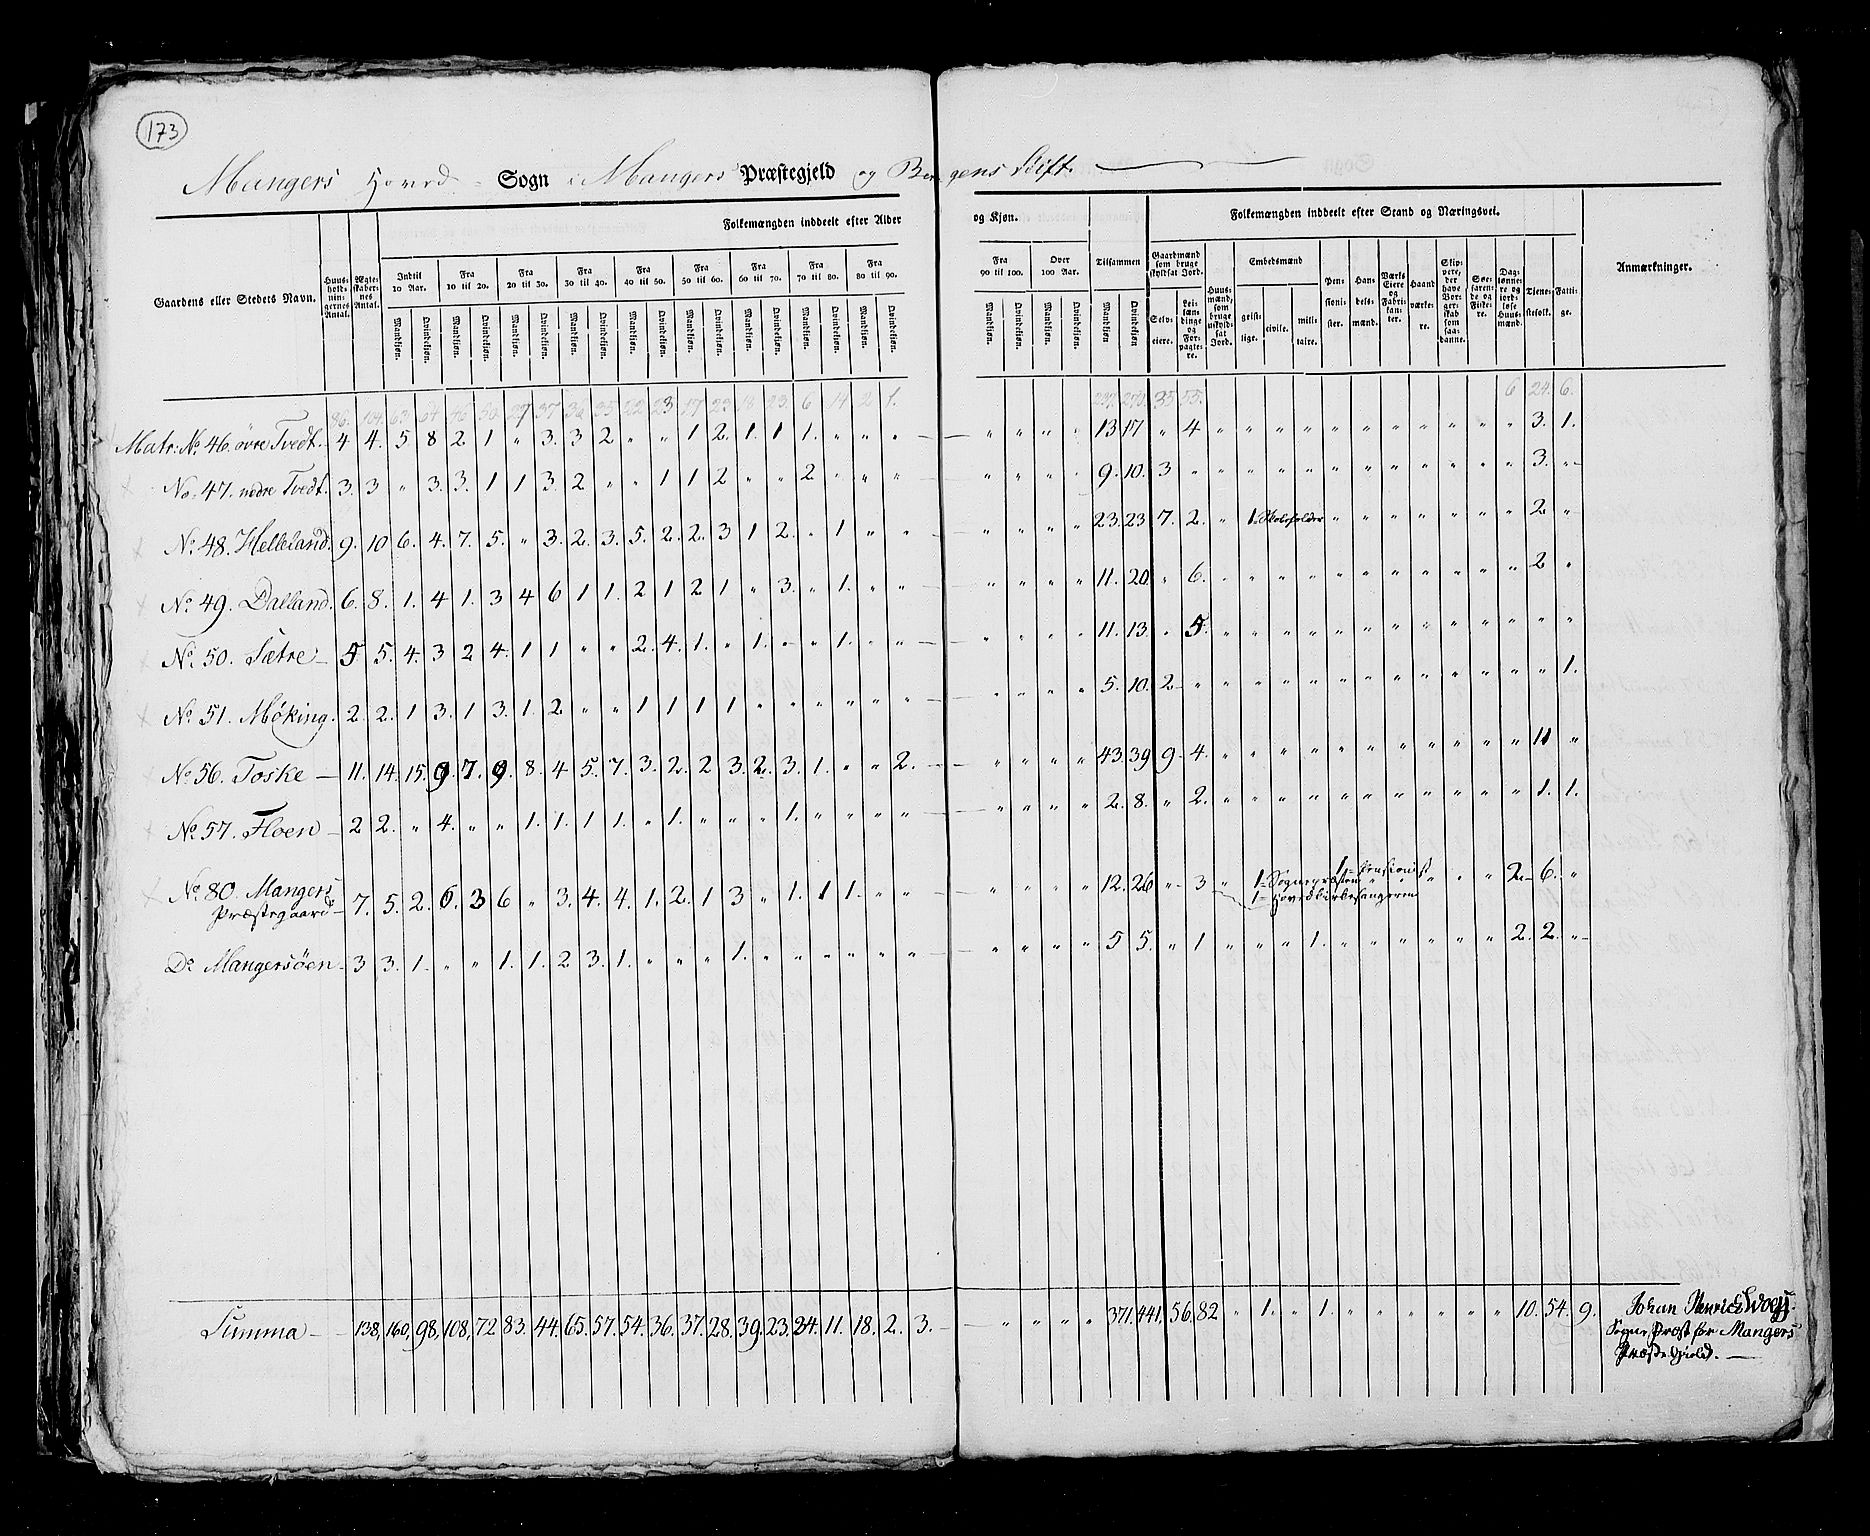 173
Mangers Hoved Sogn i Mangers Præstegjeld og Bergens Stift.
Gaardens eller Stedets Navn. Huusholdningernes Antal. Ægteskabernes Antal. Folkemængden inddeelt efter Alder og Kjøn. Tilsammen Folkemængden inddeelt efter Stand og Næringsvei. Anmærkninger.
Indtil 10 Aar. Fra 10 til 20. Fra 20 til 30. Fra 30 til 40. Fra 40 til 50. Fra 50 til 60. Fra 60 til 70. Fra 70 til 80. Fra 80 til 90. Fra 90 til 100. Over 100 Aar. Gaardmænd som bruge skyldsat Jord. Huusmænd, som bruge uskyldsat Jord. Embedsmænd Pensionister. Handelsmænd. Værks Eiere og Fabrikanter. Haandværkere. Skippere, der have Borgerskab som saadanne. Søefarende og Fiskere. Daglønnere og jordløse Huusmænd. Tjenestefolk. Fattige.
Mandkjøn. Qvindekjøn. Mandkjøn. Qvindekjøn. Mandkjøn. Qvindekjøn. Mandkjøn. Qvindekjøn. Mandkjøn. Qvindekjøn. Mandkjøn. Qvindekjøn. Mandkjøn. Qvindekjøn. Mandkjøn. Qvindekjøn. Mandkjøn. Qvindekjøn. Mandkjøn. Qvindekjøn. Mandkjøn. Qvindekjøn. Mandkjøn Qvindekjøn Selveiere. Leilændinge og Forpagtere. geistlige. civile. militaire.
Matr: No 46. øvre Tvedt. 4 4. 5 8 2 1 " 3. 3 2 " " 1 2. 1. 1 1. " " " " " " " 13 17 " 4 " " " " " " " " " " " 3. 1.
No 47. nedre Tvedt. 3. 3 " 3. 3. 1 1 3. 2 " " 1 1 2 " " 2 " " " " " " " 9. 10. 3 " " " " " " " " " " " " 3. "
No 48. Helleland. 9. 10 6. 4. 7. 5. " 3. 2. 3. 5. 2. 2. 3 1 2. " 1 " " " " " " 23. 23 7. 2. " 1. Skoleholder " " " " " " " 2 "
No 49. Dalland. 6. 8. 1. 4 1. 3 4 6 1 1. 2 1 2 1 " 3. " 1. " " " " " " 11. 20. " 6. " " " " " " " " " " " 2 "
No 50. Sætre 5 5. 4. 3 2 4. 1 1 " " 2. 4. 1. " 1. " " 1. " " " " " " 11. 13. " 5. " " " " " " " " " " " " "
No 51. Møking. 2. 2. 1 3. 1 3. 1. 2 " " 1 1 1 1 " " " " " " " " " " 5. 10. 2 " " " " " " " " " " " " " 1.
No 56. Toske 11. 14. 15. 9. 7. 9. 8. 4 5. 7. 3. 2. 2 3. 2. 3. 1. " " 2. " " " " 43. 39 9. 4. " " " " " " " " " " " 11 "
No 57. Floen 2 2. " 4. " " 1. 1. 1 1. " 1. " " " 1. " " " " " " " " 2. 8. " 2. " " " " " " " " " " " 1. 1.
No 80. Mangers 1 Pensionist
Præstegaard 7. 5. 2. 6. 3 6 " 3. 4. 4. 1. 2. 1 3 " 1. 1 1. " " " " " " 12. 26 " 3 " 1 Sognepræsten " " " " 2. 6. "
1 Hovedkirkesangeren
Do Mangersøen 3 3. 1. " " 1. 1. 2 3. 1. " " " 1. " " " " " " " " " " 5 5. " 1 " " " 1. " " " " " " 2. 2. "
Summa 138. 160. 98. 108. 72 83. 44. 65. 57. 54. 36. 37. 28. 39. 23. 24. 11. 18. 2. 3. " " " " 371. 441. 56. 82 " 1. " 1. " " " " " " 10. 54. 9.
Sogne Præst for Mangers
Præste Gield.